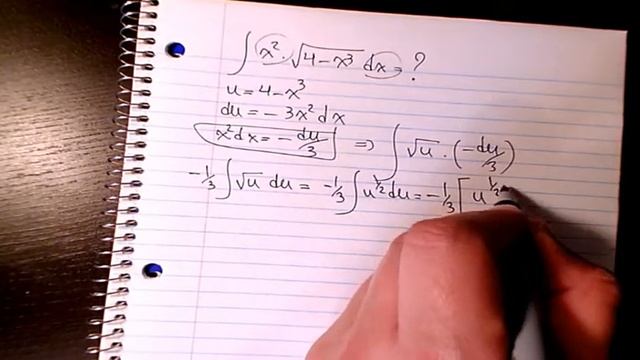 ∫ x² · √(4 – x³) dx = ?
u = 4 – x³
du = – 3x² dx
x² dx = – du/3 ⇒ ∫ √u · (– du/3)
– 1/3 ∫ √u du = – 1/3 ∫ u^1/2 du = – 1/3 [ u^1/2